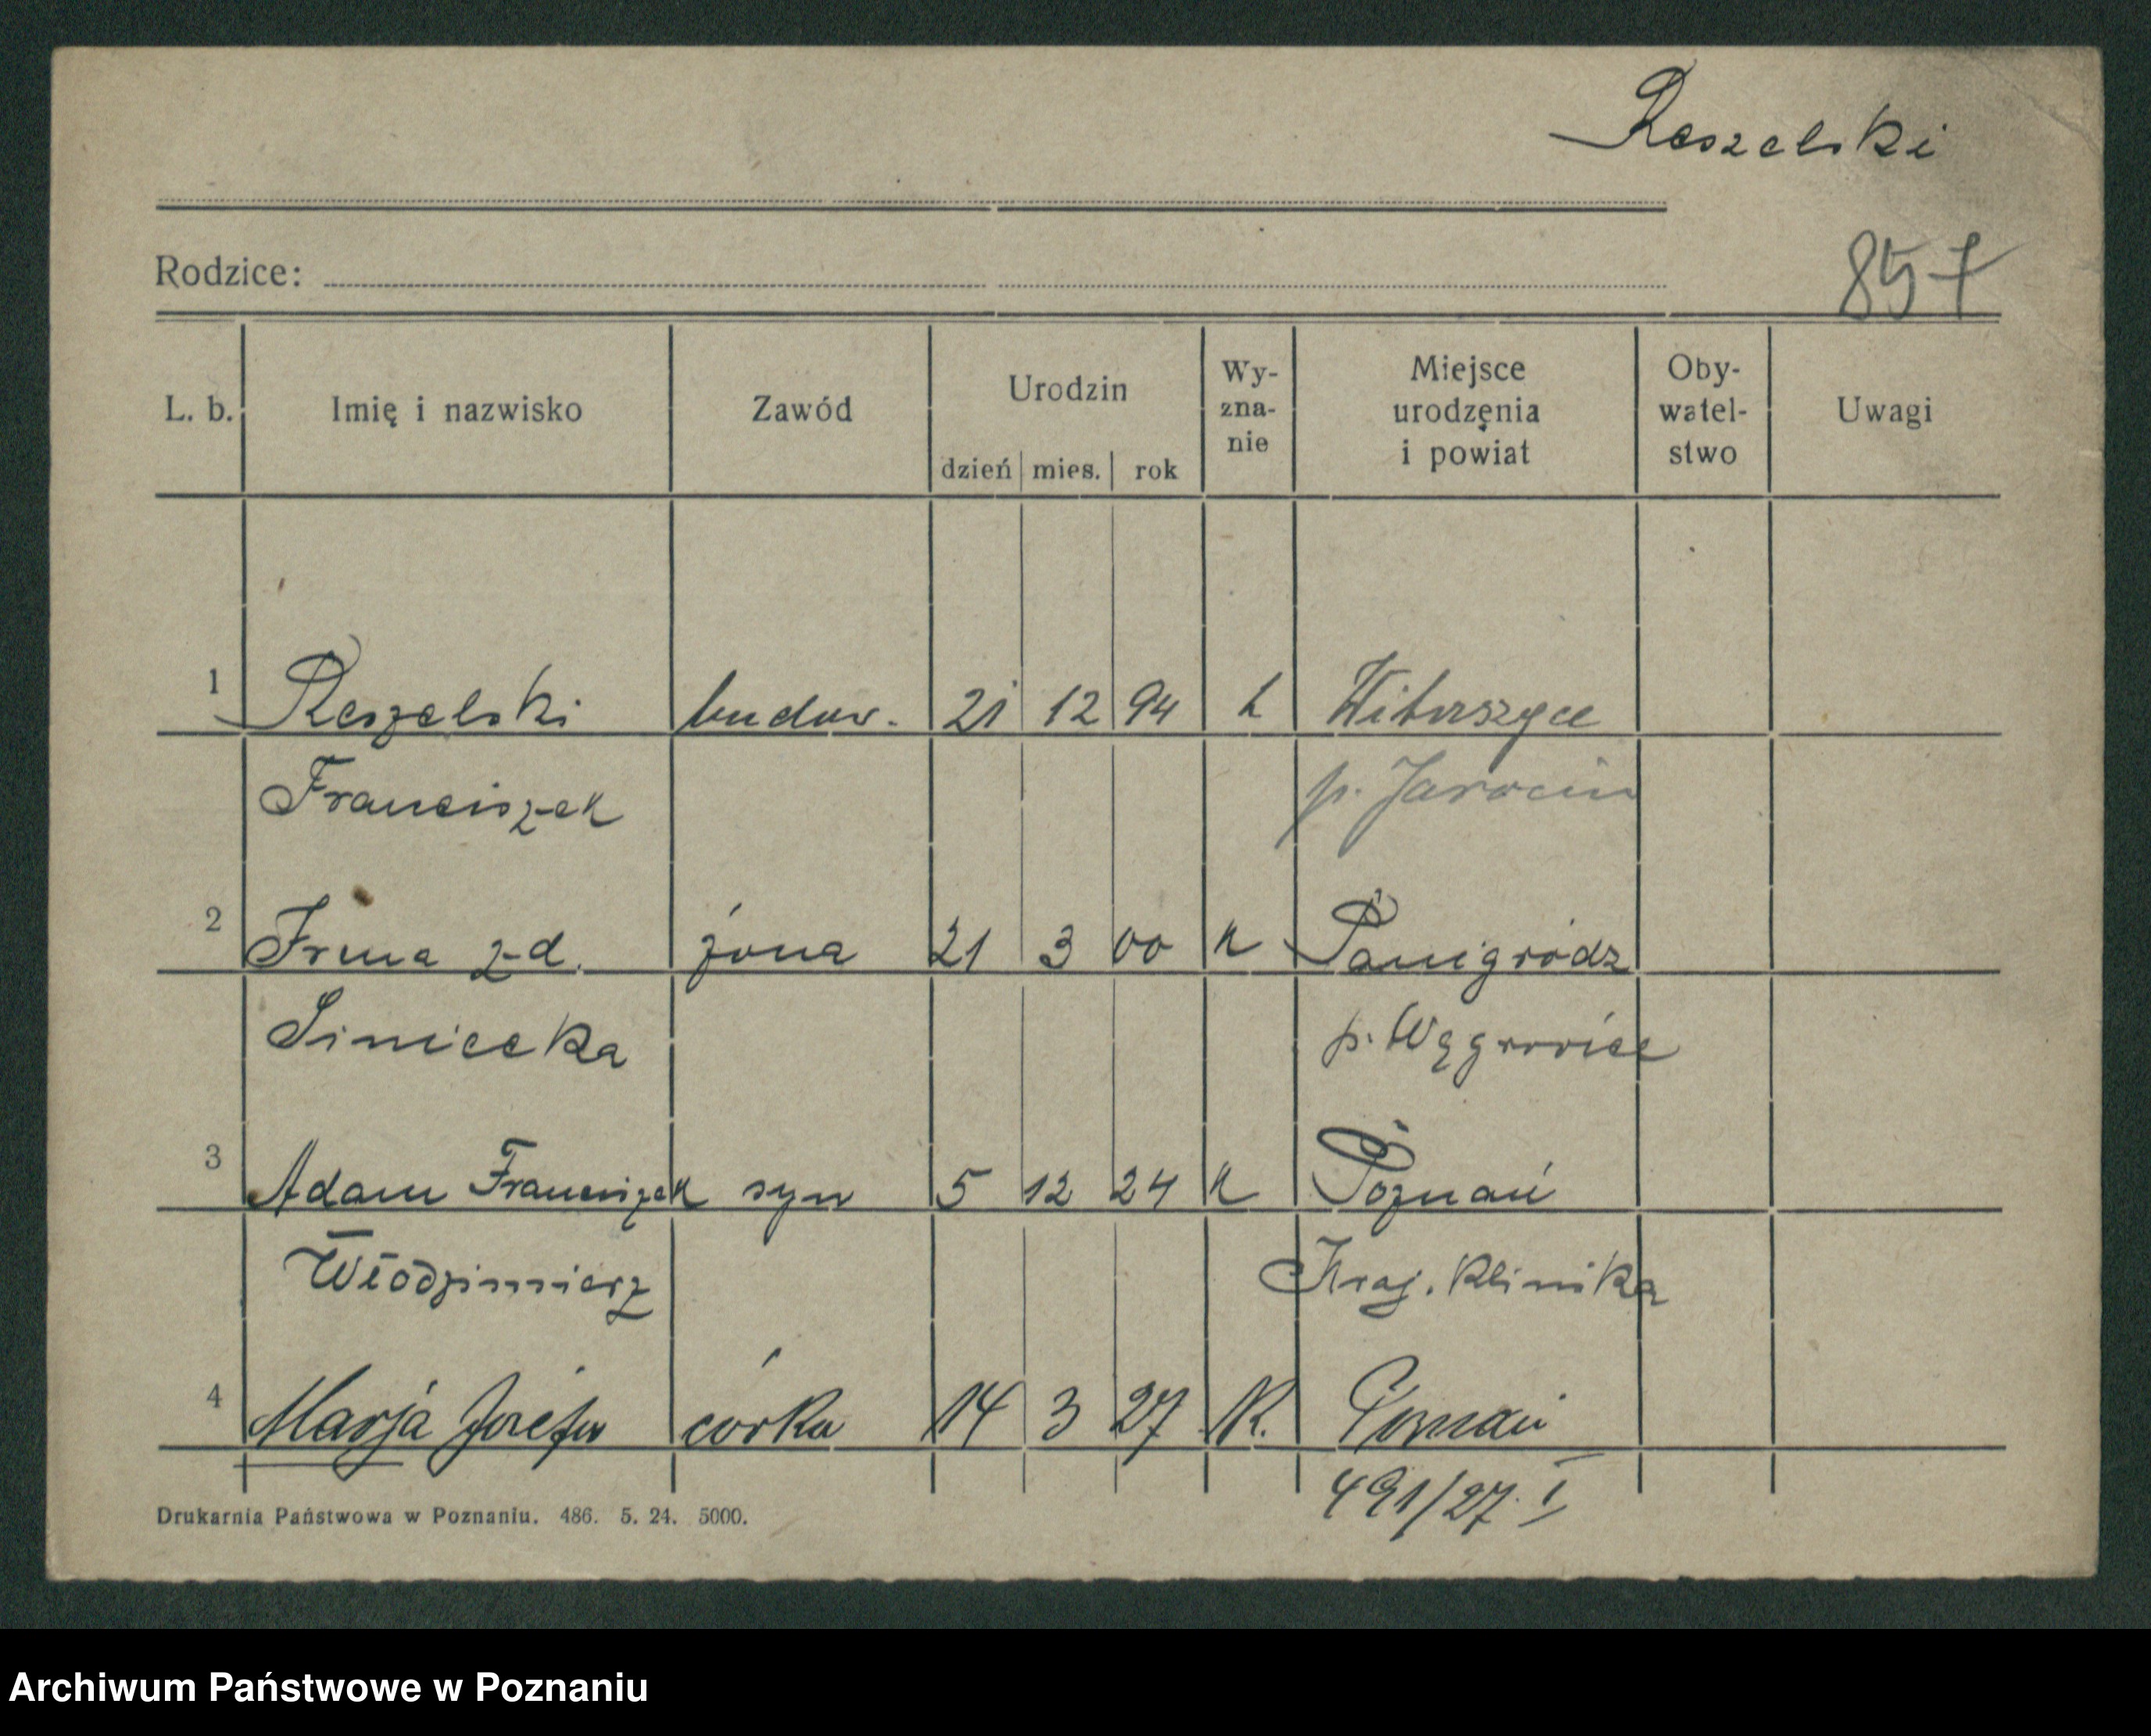 Reszelski
Rodzice:
857
L. b. Imię i nazwisko Zawód Urodzin dzień mies. rok Wy-zna-nie Miejsce urodzenia i powiat Oby-watel-stwo Uwagi
1 Reszelski budow. 21 12 94 k Witaszyce
Franciszek p. Jarocin
2 Irena z d. żona 21 3 00 k Panigródz
Siniecka p. Wągrowiec
3 Adam Franciszek syn 5 12 24 k Poznań
Włodzimierz Kraj. Klinika
4 Marja Józefa córka 14 3 27 K. Poznań
491/27. I
Drukarnia Państwowa w Poznaniu. 486. 5. 24. 5000.
Archiwum Państwowe w Poznaniu